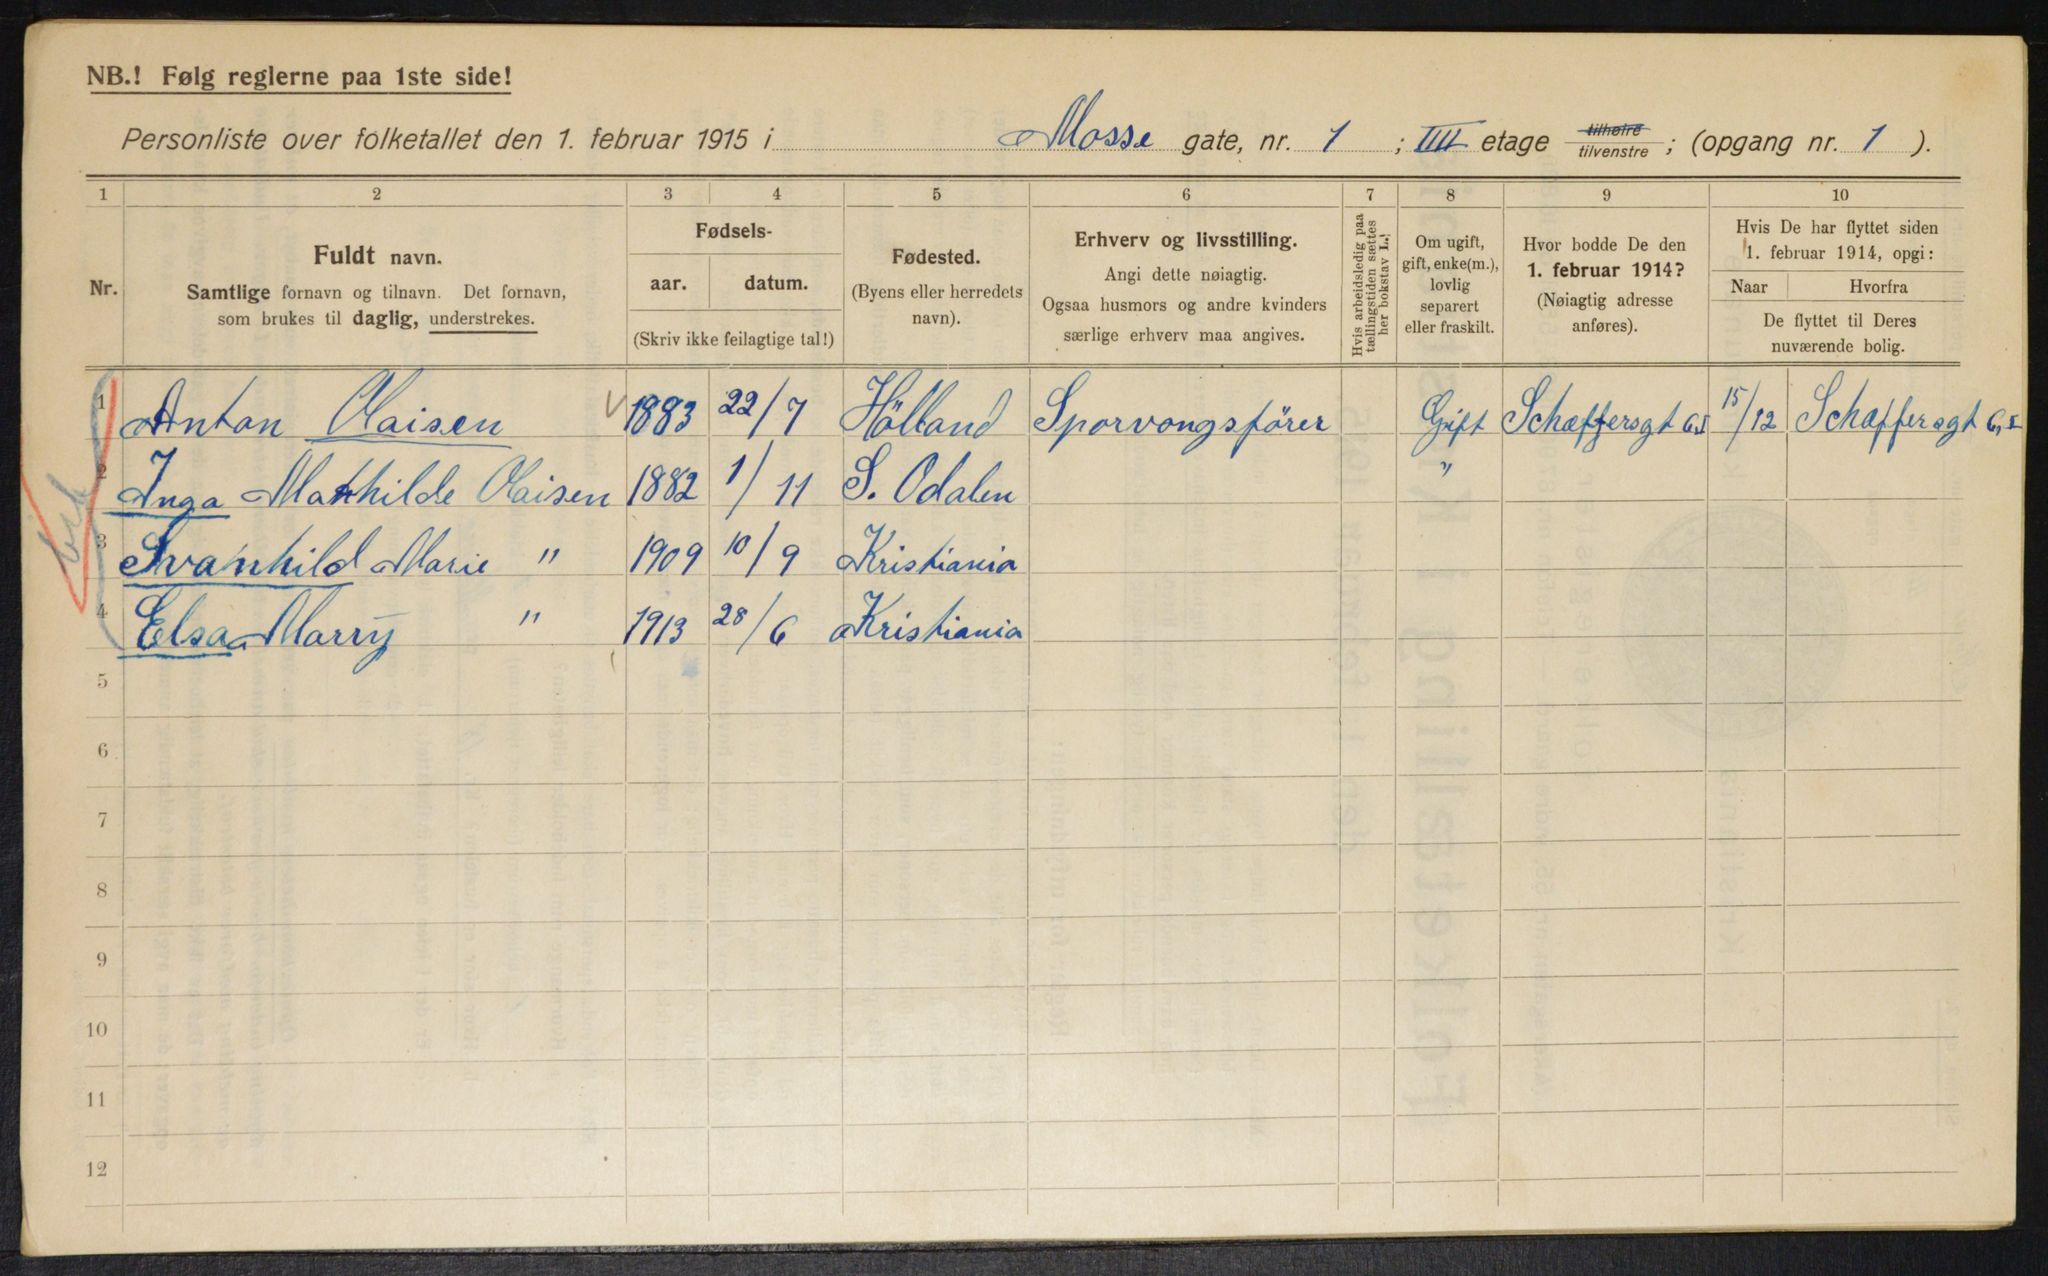 NB.! Følg reglerne paa 1ste side!
Personliste over folketallet den 1. februar 1915 i Mosse gate, nr. 1 ; IIII etage tilhøire tilvenstre ; (opgang nr. 1 ).
1 2 3 4 5 6 7 8 9 10
Nr.
Fuldt navn.
Samtlige fornavn og tilnavn. Det fornavn,
som brukes til daglig, understrekes.
Fødsels-
aar. datum.
(Skriv ikke feilagtige tal!)
Fødested.
(Byens eller herredets
navn).
Erhverv og livsstilling.
Angi dette nøiagtig.
Ogsaa husmors og andre kvinders
særlige erhverv maa angives.
Hvis arbeidsledig paa
tællingstiden sættes
her bokstav L.!
Om ugift,
gift, enke(m.),
lovlig
separert
eller fraskilt.
Hvor bodde De den
1. februar 1914?
(Nøiagtig adresse
anføres).
Hvis De har flyttet siden
1. februar 1914, opgi:
Naar Hvorfra
De flyttet til Deres
nuværende bolig.
1 Anton Olaisen 1883 22/7 Hölland Sporvongsförer Gift Schæffersgt 6,I 15/12 Schæffersgt 6,I
2 Inga Mathilde Olaisen 1882 1/11 S. Odalen "
3 Svanhild Marie " 1909 10/9 Kristiania
4 Elsa Marry " 1913 28/6 Kristiania
5
6
7
8
9
10
11
12